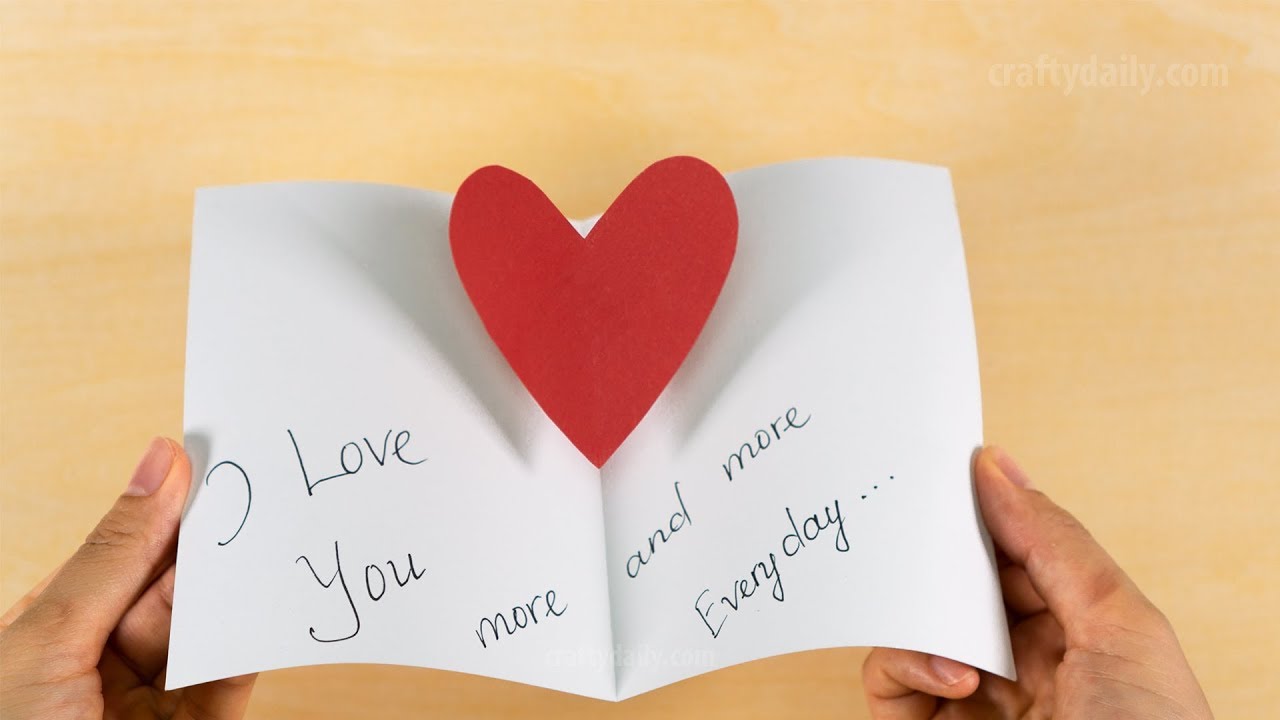 craftydaily.com
I Love
You
more and more
Everyday...
craftydaily.com